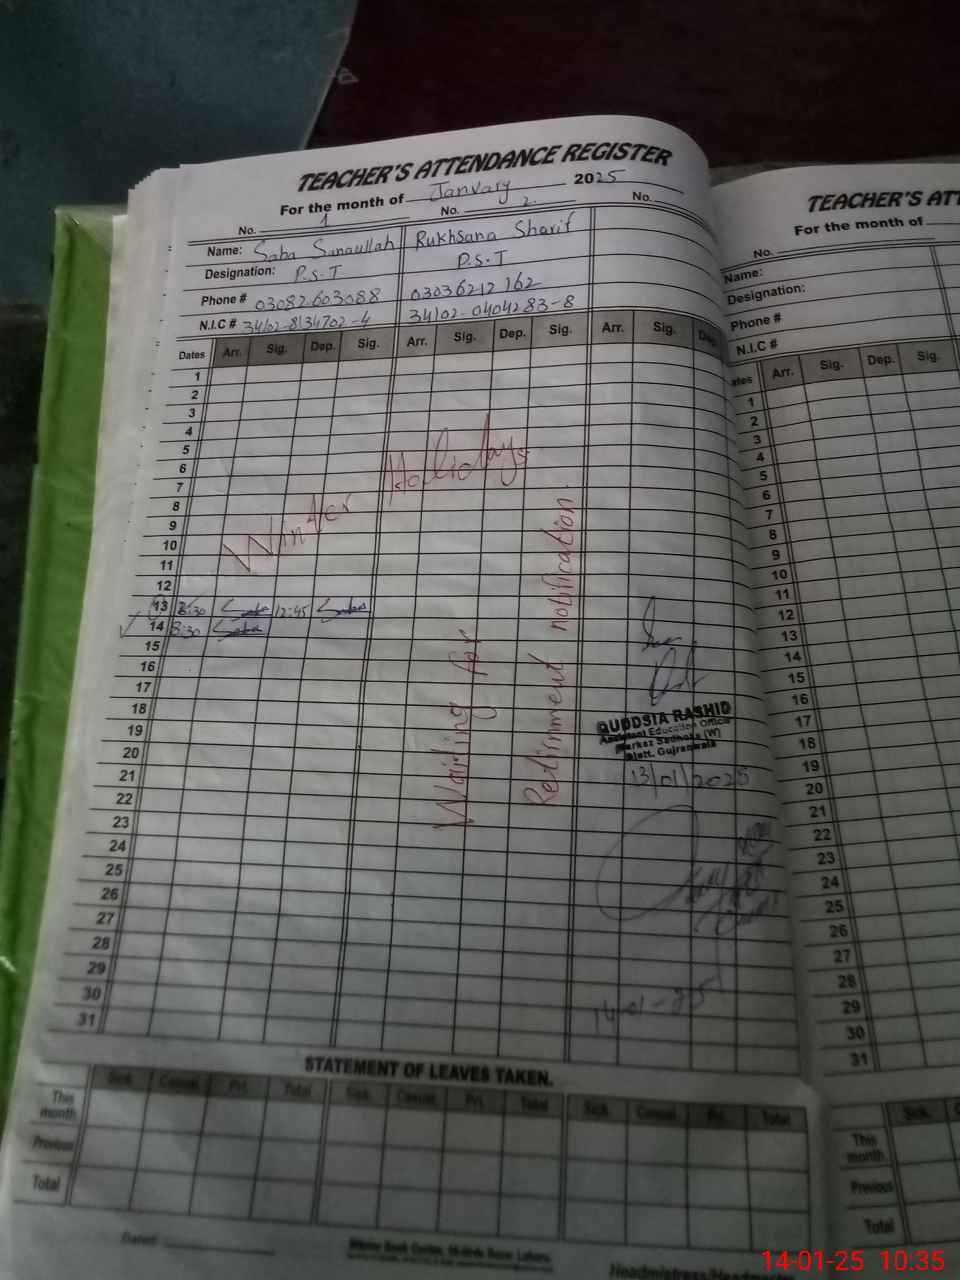 TEACHER'S ATTENDANCE REGISTER
For the month of January 2025
No. 1 No. 2. No.
Name: Saba Sanaullah Rukhsana Sharif
Designation: P.S.T P.S.T
Phone # 03082603088 03036212162
N.I.C # 34102-8134702-4 34102-0404283-8
Dates Arr. Sig. Dep. Sig. Arr. Sig. Dep. Sig. Arr. Sig. Dep
1
2
3
4
5
6
7
8
9
10
11
12
13 8:30 Saba 12:45 Saba
14 8:30 Saba
15
16
17
18
19
20
21
22
23
24
25
26
27
28
29
30
31
Winter Holidays
Waiting for
Retirnment notification.
QUDDSIA RASHID
Assistant Education Officer
Markaz Sadhoke (W)
Distt. Gujranwala
13/01/2025
14-01-25
STATEMENT OF LEAVES TAKEN.
Sick. Casual. Pri. Total Sick. Casual. Pri. Total Sick. Casual. Pri. Total
This month.
Previous
Total
Dated:
TEACHER'S ATT
For the month of
No.
Name:
Designation:
Phone #
N.I.C #
ates Arr. Sig. Dep. Sig.
1
2
3
4
5
6
7
8
9
10
11
12
13
14
15
16
17
18
19
20
21
22
23
24
25
26
27
28
29
30
31
Sick. C
This month.
Previous
Total
Headmistress/Headmaster
14-01-25 10:35